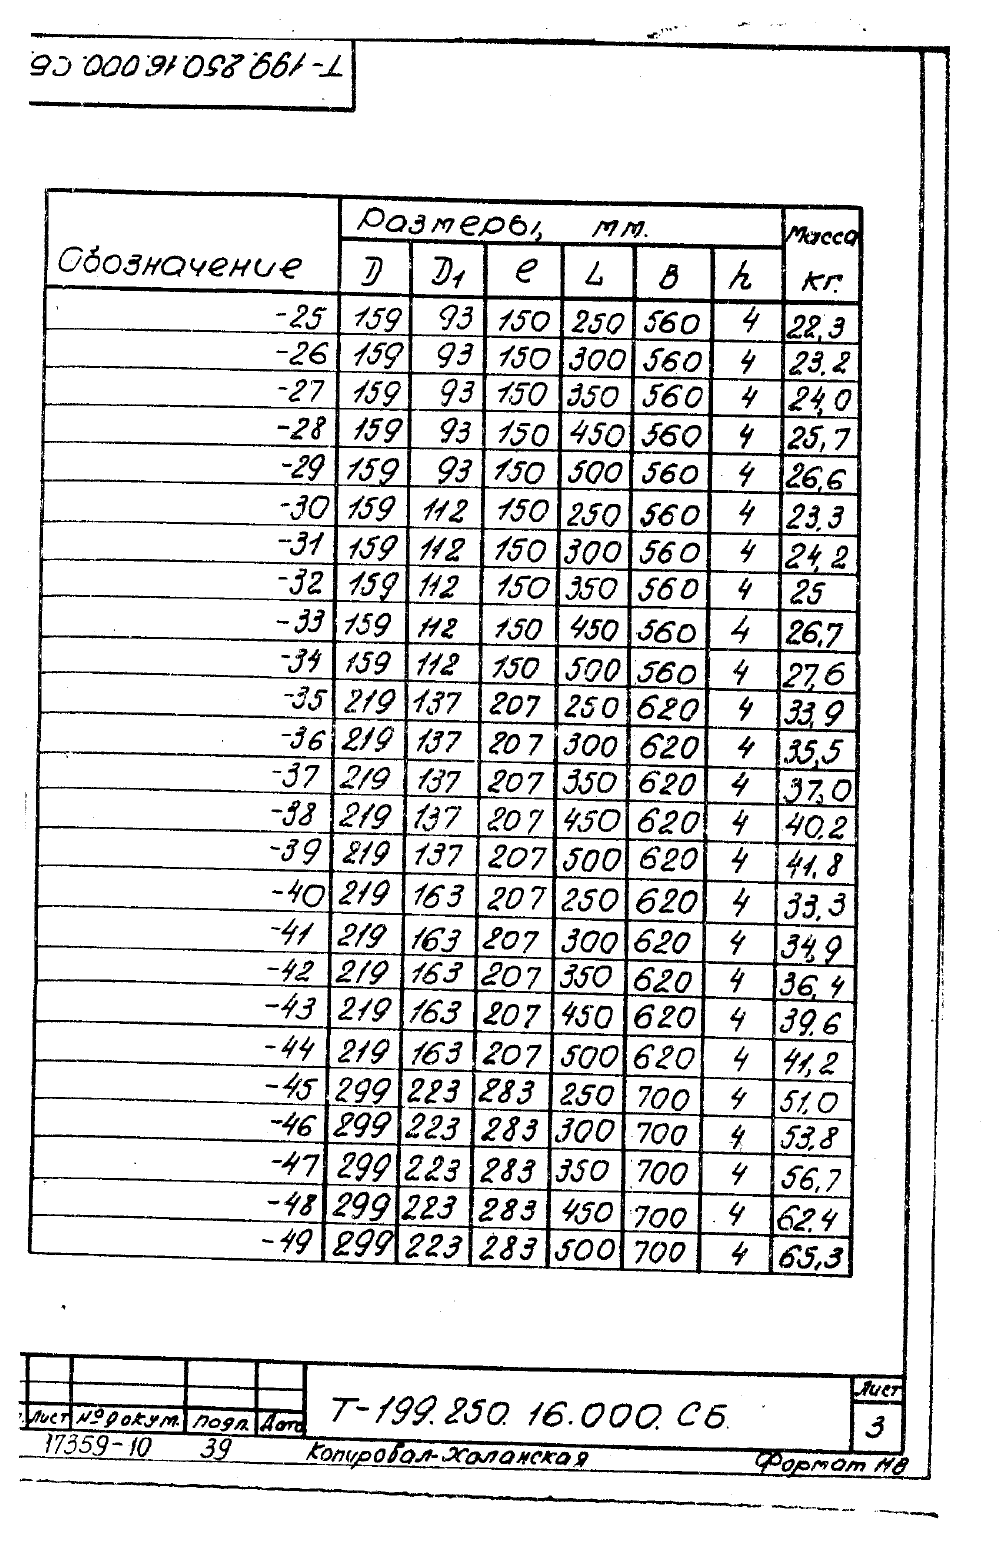 Т-199.250.16.000.СБ
Обозначение Размеры, мм. Масса кг.
D D1 e L B h
-25 159 93 150 250 560 4 22,3
-26 159 93 150 300 560 4 23.2
-27 159 93 150 350 560 4 24,0
-28 159 93 150 450 560 4 25,7
-29 159 93 150 500 560 4 26,6
-30 159 112 150 250 560 4 23.3
-31 159 112 150 300 560 4 24,2
-32 159 112 150 350 560 4 25
-33 159 112 150 450 560 4 26,7
-34 159 112 150 500 560 4 27,6
-35 219 137 207 250 620 4 33,9
-36 219 137 207 300 620 4 35,5
-37 219 137 207 350 620 4 37,0
-38 219 137 207 450 620 4 40.2
-39 219 137 207 500 620 4 41,8
-40 219 163 207 250 620 4 33,3
-41 219 163 207 300 620 4 34,9
-42 219 163 207 350 620 4 36,4
-43 219 163 207 450 620 4 39.6
-44 219 163 207 500 620 4 41,2
-45 299 223 283 250 700 4 51.0
-46 299 223 283 300 700 4 53,8
-47 299 223 283 350 700 4 56,7
-48 299 223 283 450 700 4 62.4
-49 299 223 283 500 700 4 65,3
Т-199.250.16.000.СБ. Лист 3
Лист № докум. подп. Дата
17359-10 39 Копировал-Халанская Формат М8